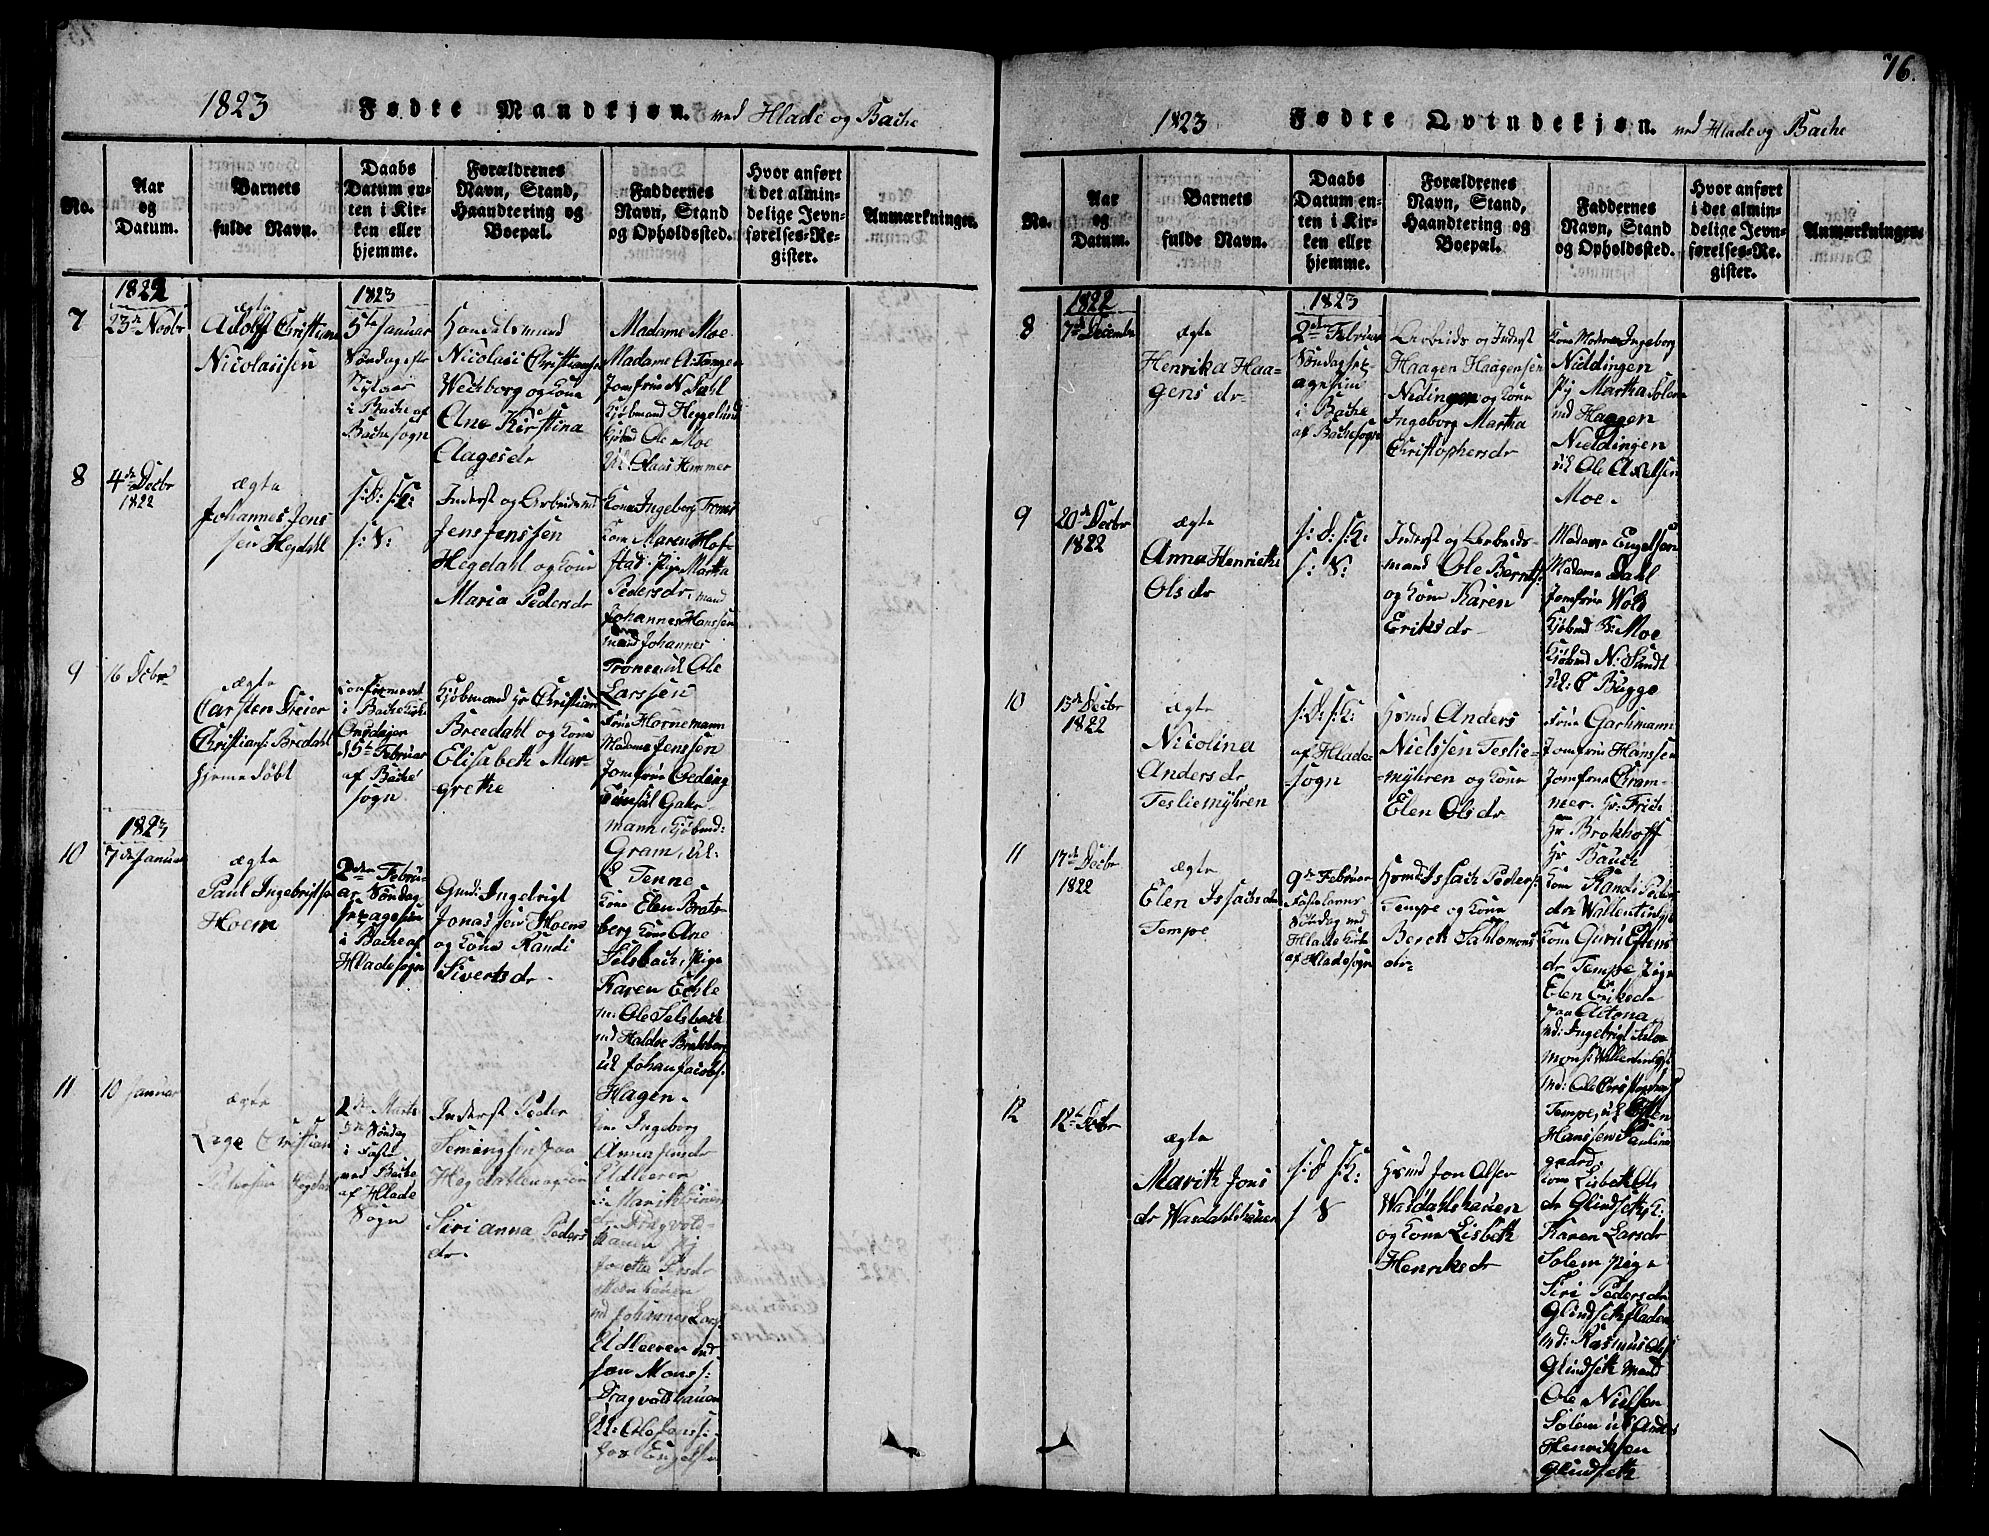 76.
1823 Fødte Mandkjøn. ved Hlade og Bache
No.
Aar
og
Datum.
Barnets
fulde Navn.
Daabs
Datum en-
ten i Kir-
ken eller
hjemme.
Forældrenes
Navn, Stand,
Haandtering og
Boepæl.
Faddernes
Navn, Stand
og Opholdssted.
Hvor anført
i det almin-
delige Jevn-
førelses-Re-
gister.
Anmærkninger.
7
1822
23de Novbr
ægte
Adolf Christian
Nicolaüsen
1823
5te Januar
Søndag efter
Nytaar
i Bache af
Bache sogn
Handelsmand
Nicolaü Christians
Wedborg og Kone
Ane Kirstina
Aagesdr
Madame Moe
Madame A: Tangen
Jomfrue N. Dahl
Kjøbmand Heggelund
Kjøbmd Ole Moe
Ul. Claus Hammer
8
4de Decbr
1822
ægte
Johannes Jens
sen Hegdahl
s: D: s: K:
s: S:
Inderst og Arbeidsmd
Jens Jenssen
Hegdahl og Kone
Maria Pedersdr
Kone Ingeborg Trones
Kone Maren Hof-
stad. Pige Martha
Pedersdr, mand
Johannes Hanssen
mand Johannes
Trones, ul Ole
Larssen
9
16 Decbr
ægte
Carsten Dreier
Christians: Bredahl
hjemedøbt
Confirmeret
i Bache Kirke
Onsdagen
d 5te Februar
af Bache
sogn
Kjøbmand Hr Christian
Breedahl og Kone
Elisabeth Mar-
grethe
Frue Hornemann
Madame Jenssen
Jomfrue Oeding
Consül Gahr-
mann, Kjøbmd:
Gram, ul:
L Tenne
10
1823
7de Januar
ægte
Paul Ingebrigtsen
Hoem
2den Febru-
ar Søndag
sexagesima
i Bache af
Hlade sogn
Gmd: Ingebrigt
Jonassen Hoem
og Kone Randi
Sivertsdr
Kone Elen Brats-
berg Kone Ane
Selsbach, Pige
Karen Eehle
m: Ole Selsbach
md Haldoe Bratsberg
ul Johan Jacobs:
Hagen.
11
10 Januar
ægte
Lage Christian
Petersen Hegdal
2den Marts
3die Søndag
i Faste
ved Bache
af Hlade
Sogn
Inderst Peder
Hegdahlen og Kone
Siri anna Peders
dr.
Kone Ingeborg
Anna Jensdr
Udleeren
md Johannes Lars:
Udleeren md
Jon Monss:
Dragvoldhauen
Ul: Ole Jenss:
1823 Fødte Qvindekjøn. ved Hlade og Bache
No.
Aar
og
Datum.
Barnets
fulde Navn.
Daabs
Datum en-
ten i Kir-
ken eller
hjemme.
Forældrenes
Navn, Stand,
Haandtering og
Boepæl.
Faddernes
Navn, Stand
og Opholdssted.
Hvor anført
i det almin-
delige Jevn-
førelses-Re-
gister.
Anmærkninger.
8
1822
7de Decembr
ægte
Henrika Haa-
gens dr
1823
2den Februar
Søndag sex-
agesima
i Bache
af Bache sogn
Arbeids og Inderst
Haagen Haagensen
Nidingen og Kone
Ingeborg Martha
Christophersdr
Kone Ingeborg
Nieldingen
Pig Martha Solem
md Haagen
Nieldingen
ul Ole Axelsen
Moe.
9
20de Decbr
1822
ægte
Anna Henriethe
Olsdr
s: D: s: K:
s: S:
Inderst og Arbeids-
mand Ole Bernts:
og Kone Karen
Eriksdr
Madame Engelsen
Madame Dahl
Jomfrue Wold
Kjøbmd F: Moe
Kjøbmd N: Sundt
Ul: C Bugge
10
13de Decbr
1822
ægte
Nicolina
Andersdr
Tesliemÿhren
s: D: s: K:
af Hlade-
sogn
Hsmd Anders
Nielssen Teslie-
mÿhren og Kone
Elen Olsdr
Frue Garhmann
Jomfrue Hanssen
Jomfrue Cram-
mer. Hr. Frich
Hr Brokhoff
Hr Bauch
11
17de Decbr
1822
ægte
Elen Issachsdr
Tempe
9de Februar
Fastelavns
Søndag ved
Hlade Kirke
af Hlade sogn
Hsmd Issach Peders
Tempe og Kone
Bereth Sahlomons
dr
Kone Randi Peders
dr Wallentinlyst
Kone Guru Estens
dr Tempe Pige
Elen Eriksdr
paa Altona
md: Ingebrigt Salo
mons: Wallentinlyst
md: Ole Christophers
Tempe, ul Esten
Hanssen Paulina
gaard.
12
12te Decbr
ægte
Marith Jons
dr Wardahlshauen
s: D s: K:
s S
Hsmd Jon Olsen
Wardahlshauen
og Kone Lisbeth
Henriksdr
Kone Lisbeth Ols
dr Glindseth, K:
Karen Larsdr
Solem Pige
Siri Pedersdr
Glindsethfladen
md: Rasmus Ols:
Glindseth mand
Ole Nielsen
Solem ul Anders
Henriksen
Glindseth